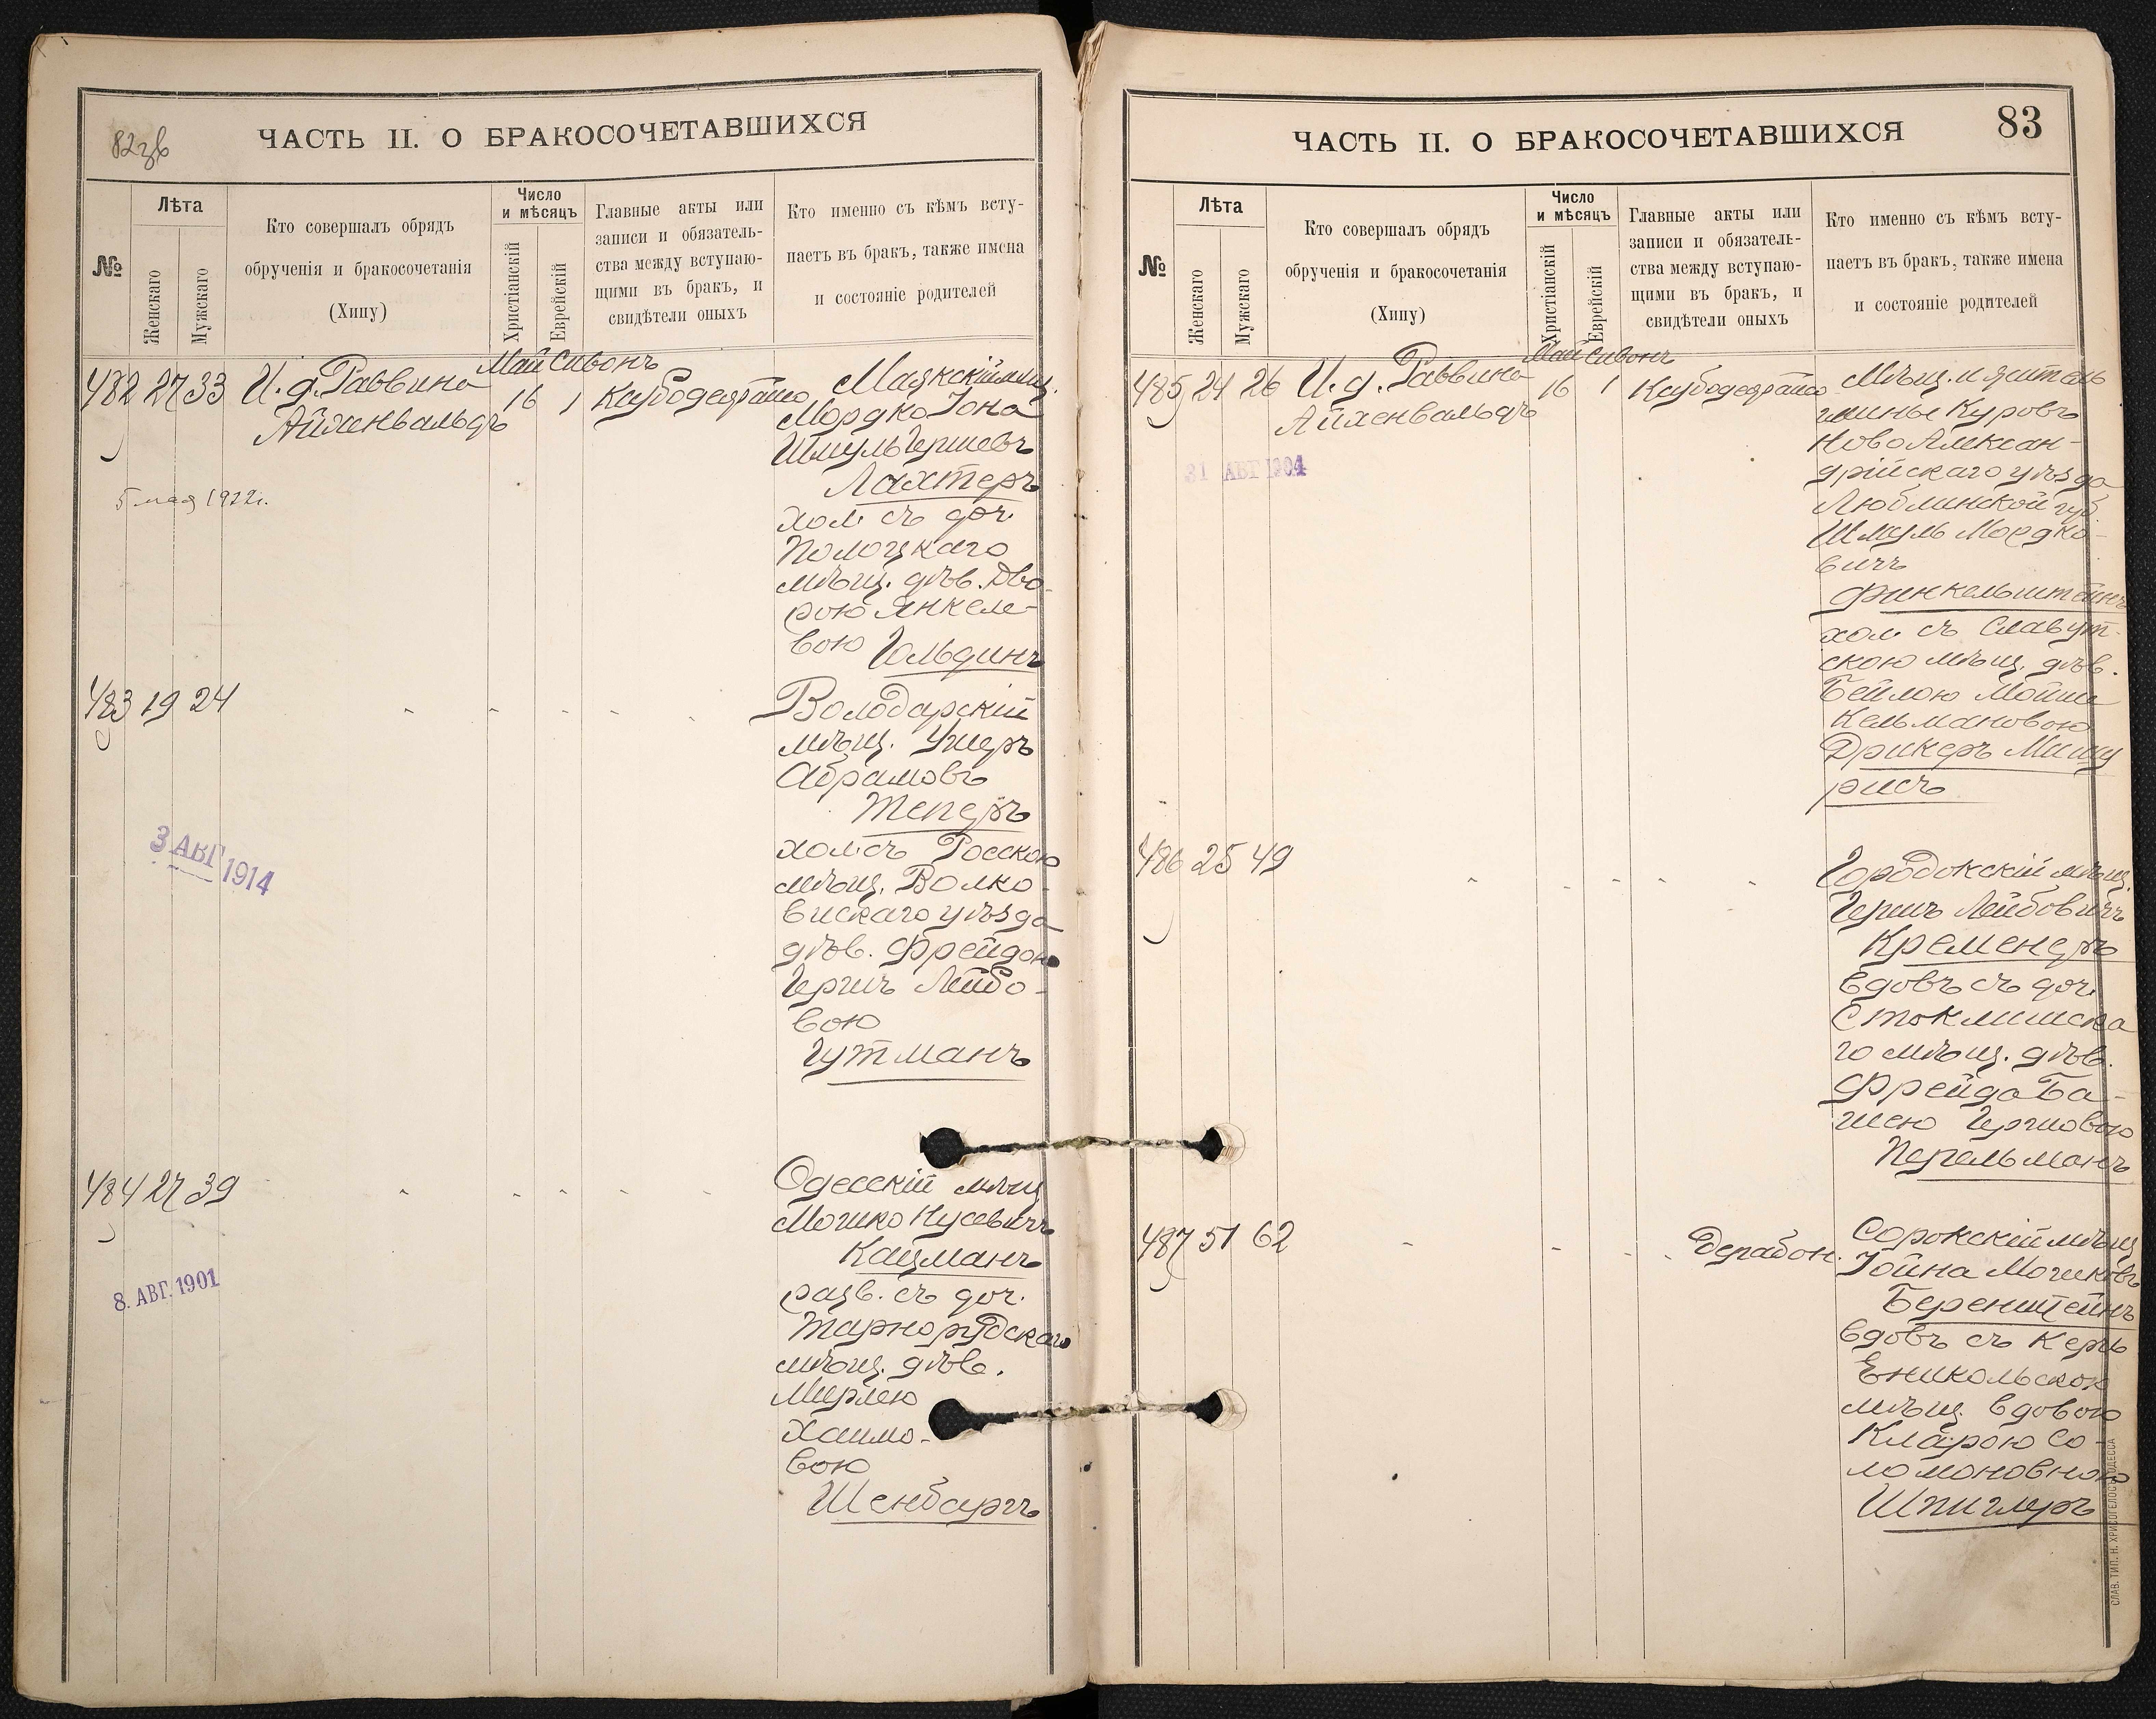 82зв
ЧАСТЬ II. О БРАКОСОЧЕТАВШИХСЯ
№
Лѣта
Женскаго
Мужскаго
Кто совершалъ обрядъ
обрученія и бракосочетанія
(Хипу)
Число
и мѣсяцъ
Христіанскій
Еврейскій
Главные акты или
записи и обязатель-
ства между вступаю-
щими въ бракъ, и
свидѣтели оныхъ
Кто именно съ кѣмъ всту-
паетъ въ бракъ, также имена
и состояніе родителей
Май Сивонъ
482 27 33 И. д. Раввина
Айхенвальдъ
16 1
5 мая 1922г.
Маякскій мѣщ.
Мордко Іона
Шмуль Гершевъ
Лахтеръ
хол. съ доч.
Полоцкаго
мѣщ. дѣв. Дво-
рою Янкеле-
вою Гольдинъ
483 19 24
3 АВГ 1914
Володарскій
мѣщ. Ушеръ
Абрамовъ
Теперъ
хол. съ Росскою
мѣщ. Волко-
вискаго уѣзда
дѣв. Фрейдою
Гершъ Лейбо-
вою
Гутманъ
484 27 39
8. АВГ. 1901
Одесскій мѣщ.
Мошко Нусевичъ
Кацманъ
разв. съ доч.
Тарнорудскаго
мѣщ. дѣв.
Мирлею
Хаимо-
вою
Шенбаргъ
83
ЧАСТЬ II. О БРАКОСОЧЕТАВШИХСЯ
№
Лѣта
Женскаго
Мужскаго
Кто совершалъ обрядъ
обрученія и бракосочетанія
(Хипу)
Число
и мѣсяцъ
Христіанскій
Еврейскій
Главные акты или
записи и обязатель-
ства между вступаю-
щими въ бракъ, и
свидѣтели оныхъ
Кто именно съ кѣмъ всту-
паетъ въ бракъ, также имена
и состояніе родителей
Май Сивонъ
485 24 26 И. д. Раввина
Айхенвальдъ
16 1
31 АВГ 1904
Мѣщ. и житель
гмины Куровъ
Ново Алексан-
дрійскаго уѣзда
Люблинской губ.
Шмуль Мордко-
вичъ
Финкельштейнъ
хол. съ Славут-
скою мѣщ. дѣв.
Бейлою Мойше
Кельмановою
Дрикеръ Мишу
рисъ
486 25 49
Городокскій мѣщ.
Гершъ Лейбовичъ
Кременеръ
вдовъ съ доч.
Стоклишска
го мѣщ. дѣв.
Фрейда Ба-
шею Гершовою
Перельманъ
487 51 62
Дерабон.
Сорокскій мѣщ
Іойна Мошковъ
Беренштейнъ
вдовъ съ Керчь
Еникольскою
мѣщ. вдовою
Кларою Со-
ломоновною
Шпиглеръ
СЛАВ. ТИП. Н. ХРИСОГЕЛОСЪ ОДЕССА